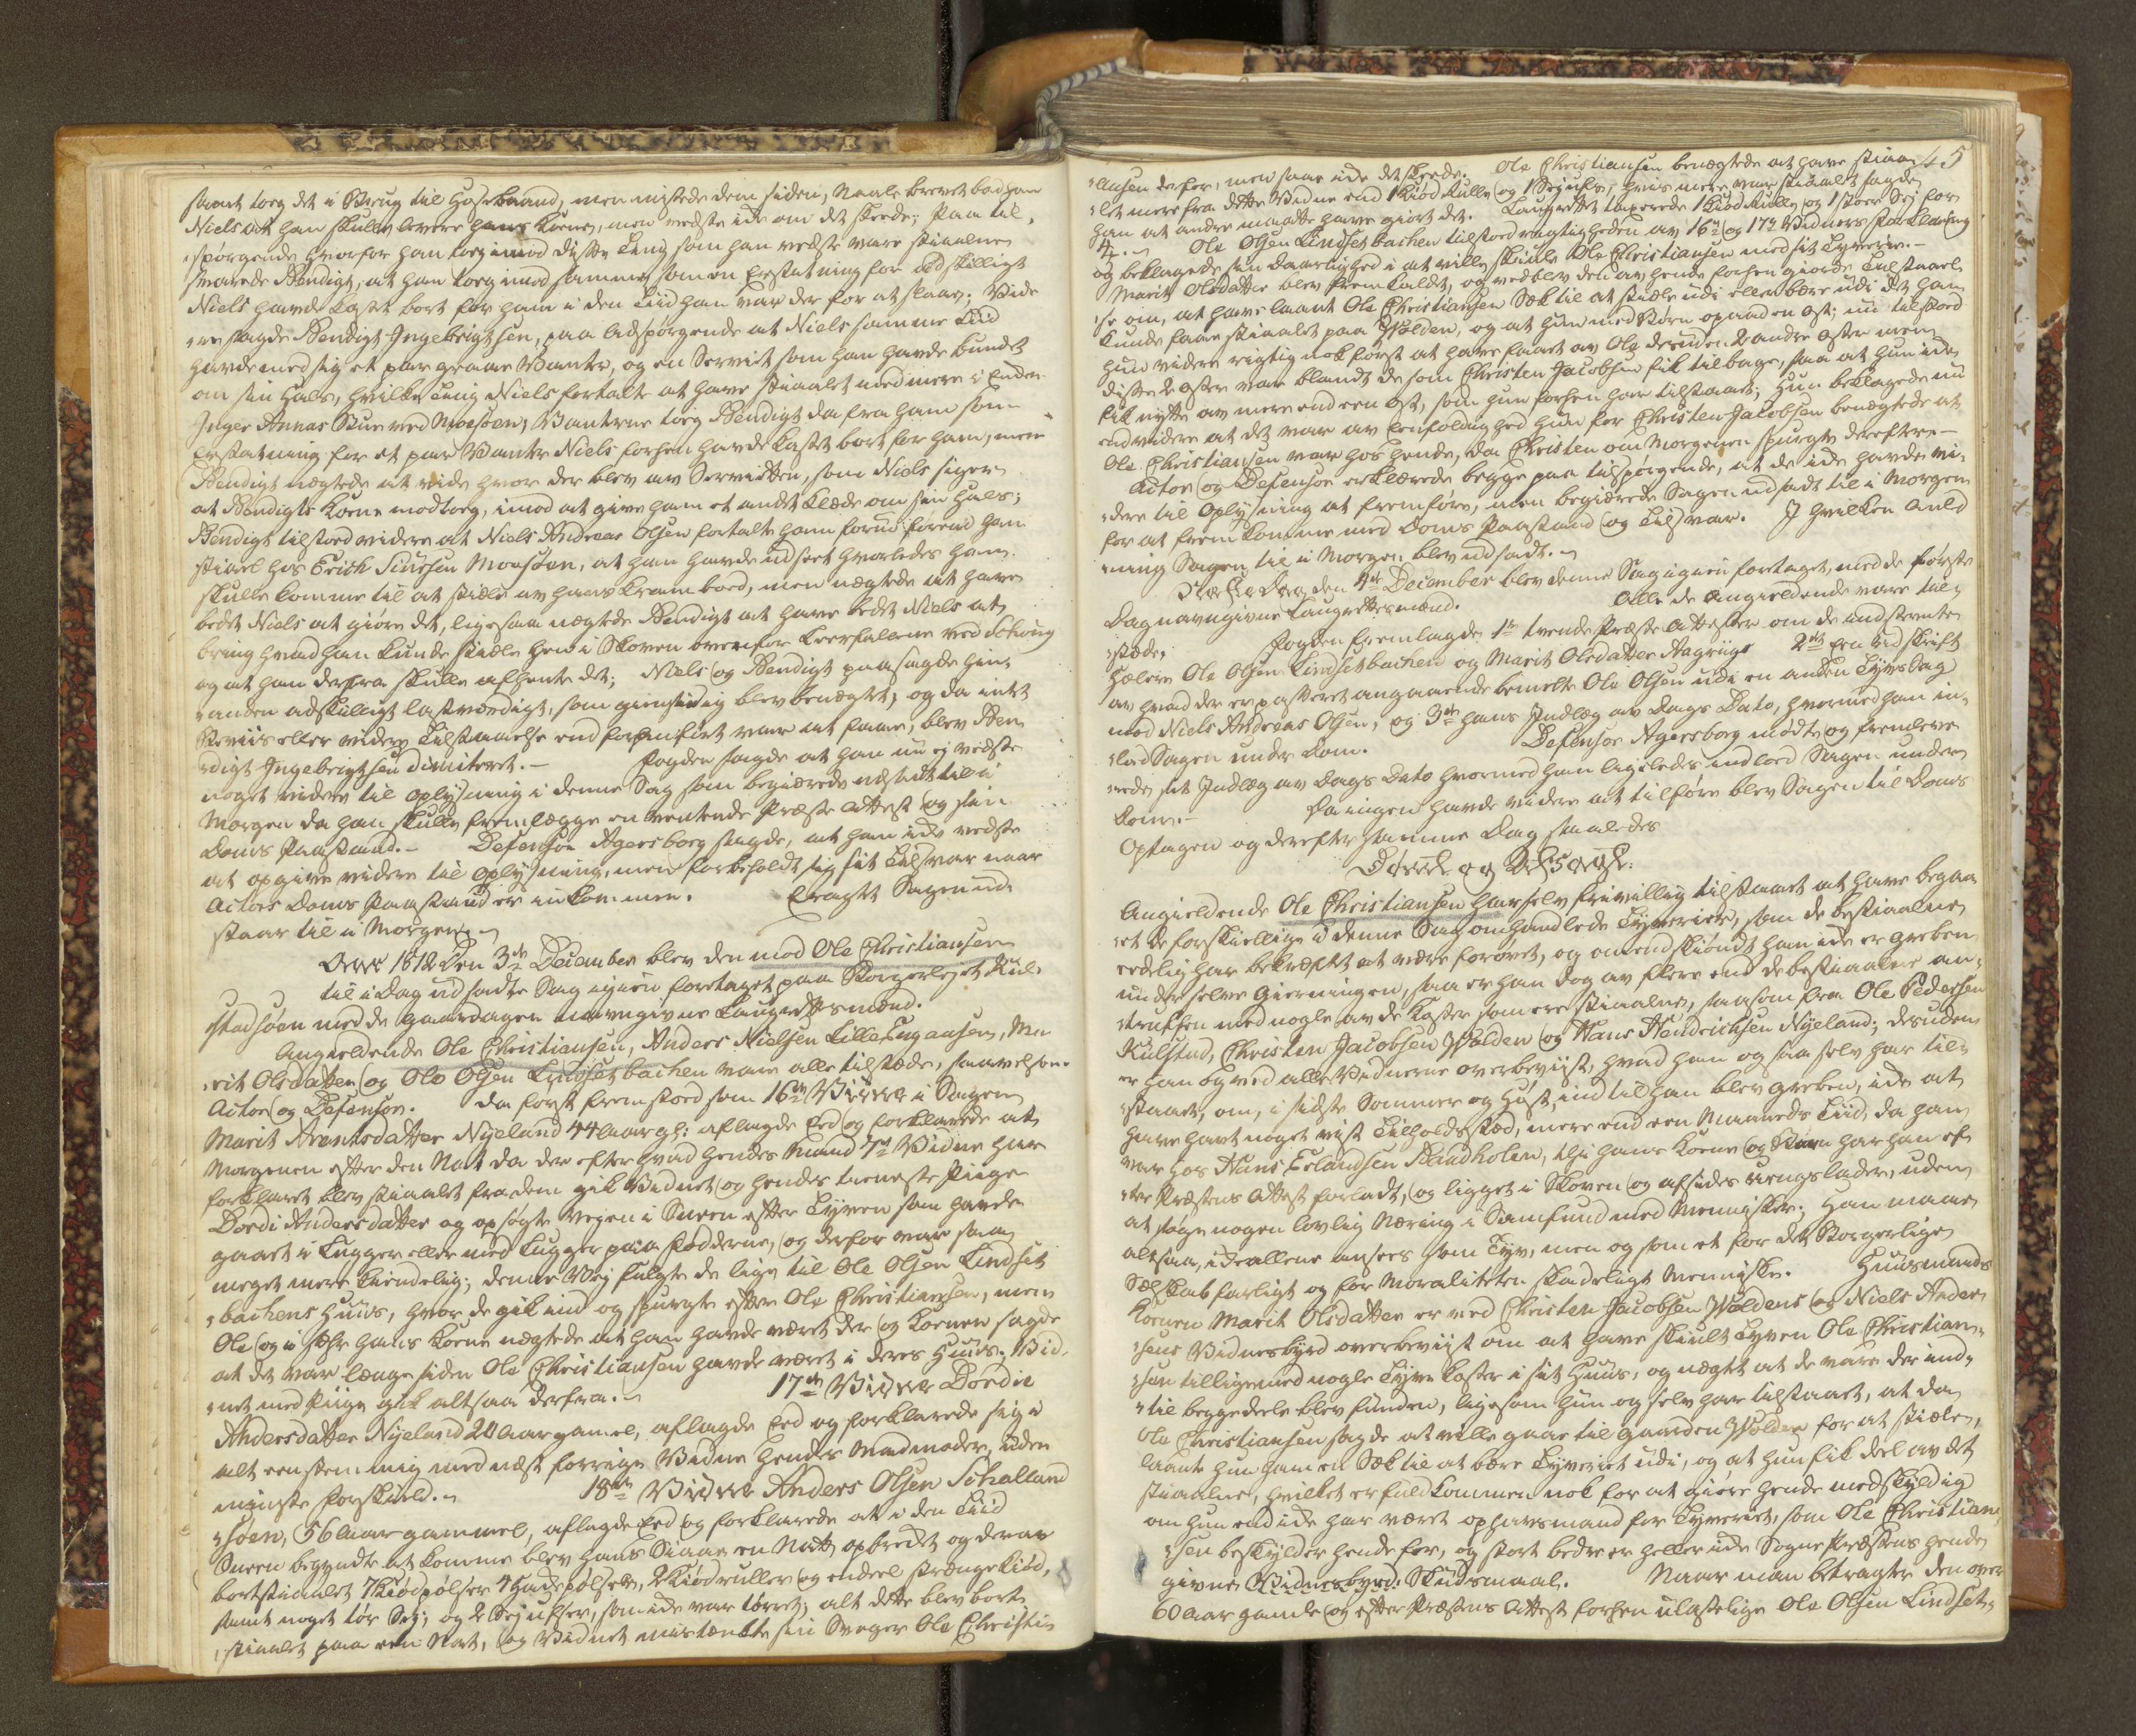 smart tog det i Brug til Hosebaand, men mistede dem siden, Naale brevet bad han
Niels at han skulle levere hans Kone, men vedste ide om det skeede; Paa til,
spørgende hvorfor han tog imod disse Ting som han vedste vare stiaalne
svarede Bendigt, at han tog imod samme som en Erstatning for adskilligt
Niels havde kastet bort for ham i den Tiid han var der for at slaae; Vide
re sagde Bendigt Ingebrigtsen, paa Adspørgende at Niels samme Tiid
havde med sig et par graae Vanter, og en Serviet som han havde bundet
om sin Hals, hvilke Ting Niels fortalte at have stiaalet med mere i Enke
Inger Annas Stue ved Moesøen, Vanterne tog Bendigt da fra ham som
Erstatning for et par Vanter Niels forhen havde kastet bort for ham, men
Bendigt nægtede at vide hvor der blev av Servietten, som Niels siger
at Bendigts Kone modtog, imod at give ham et andet Klæde om sin Hals;
Bendigt tilstoed videre at Niels Andreas Olsen fortalte ham forud førend han
stiaal hos Erich Siursen Moesøen, at han havde udseet hvorledes han
skulle komme til at stiæle av hans Krambod, men nægtede at have
bedt Niels at giøre det, ligesaa nægtede Bendigt at have bedt Niels at
bring hvad han kunde stiæle hen i Skoven ovenfor Leerfallene ved Schoug
og at han derfra skulle afhente det; Niels og Bendigt paasagde hin,
anden adskilligt lastværdigt, som giensidig blev benægtet, og da intet
Beviis eller videre Tilstaaelse end forhen anført var at faae, blev Ben
digt Ingebrigtsen dimiteret. – Fogden sagde at han nu ej vedste
noget videre til Oplysning i denne Sag som begiærede udsadt til i
Morgen da han skulle fremlægge en ventende Præste Attest og sin
Doms Paastand. – Defensor Agersborg sagde, at han ide vedste
at opgive videre til Oplysning, men forbeholdt sig sit Tilsvar naar
Actors Doms Paastand er indkommen. Eragtet Sagen ud
staar til i Morgen. –
Aar 1812 Den 3de December blev den mod Ole Christiansen
til i Dag udsadte Sag igien foretaget paa Skogerlejet Kul
stadsøen med de gaardagen navngivne Laugrettesmænd.
Angieldende Ole Christiansen, Anders Nielsen Lille Tugansen, Ma
rit Olsdatter og Ole Olsen Lindsetbachen vare alle tilstæde, saavelsom
Actor og Defensor. Da først fremstoed som 16de Vidne i Sagen
Marit Arentsdatter Nyeland 44 Aar gl: aflagde Eed og forklarede at
Morgenen efter den Nat da der efter hvad hendes Mand 7de Vidne har
forklaret blev stiaalet fra dem gik Vidnet og hendes tieneste Piige
Dordi Andersdatter og opsøgte Vejen i Sneen efter Tyven som havde
gaaet i Tugger eller med Tugger paa Fødderne, og derfor var saa
meget mere kiendelig; denne Vej fulgte de lige til Ole Olsen Lindset
bachens Huus, hvor de gik ind og spurgte efter Ole Christiansen, men
Ole og i sær hans Kone nægtede at han havde været der og Konen sagde
at det var længe siden Ole Christiansen havde været i deres Huus; Vid,
net med Piige gik altsaa derfra. – 17de Vidne Dordie
Andersdatter Nyeland 20 Aar gamel, aflagde Eed og forklarede sig i
alt eenstemmig med næst forrige Vidne hendes Madmoder, uden
mindste Forskiæl. – 18de Vidne Anders Olsen Schalland
søen, 56 Aar gammel, aflagde Eed og forklarede at i den Tiid
Sneen begyndte at komme blev hans Siaae en Natt opbrudt og derav
bortstiaalet 7 kiødpølser 4 Hudepølser, 2 Kiødruller og endeel strænge Kiød,
samt noget tør Sej; og 2 Sejufser, som ide var tørret; alt dette blev bort
stiaalet paa een Natt, og Vidnet mistænkte sin Svoger Ole Christia
45
ansen derfor, men saae ide det skeede. Ole Christiansen benægtede at have stiaa
let mere fra dette Vidne end 1 Kiød Rulle og 1 Sejufs, hvis mere var stiaalet sagde
han at andre maatte have giort det. Laugretten taxerede 1 Kiødrulle og 1 større Sej for
4 – Ole Olsen Lindsetbachen tilstoed rigtigheden av 16de og 17de Vidners Forklaring
og beklagede sin Daarlighed i at ville skiule Ole Christiansen med sit Tyverie. –
Marit Olsdatter blev fremkaldt, og vedblev den av hende forhen giorde Tilstaael
se om, at have laant Ole Christiansen Sæk til at stiæle udi eller bære udi det han
kunde faae stiaalet paa Wolden, og at hun med Børn opaad en Ost; nu tilstoed
hun videre rigtig nok først at have faaet av Ole desuden 2 andre Oster men
disse 2 Oster var blandt de som Christen Jacobsen fik tilbage, saa at hun ide
fik nytte av mere end een Ost, som hun forhen har tilstaaet; Hun beklagede nu
endvidere at det var av Eenfoldighed hun for Christen Jacobsen benægtede at
Ole Christiansen var hos hende, da Christen om Morgenen spurgte derefter. –
Actor og Defensor erklærede begge paa tilspørgende, at de ide havde vi,
dere til Oplysning at fremføre, men begiærede Sagen udsadt til i Morgen
for at fremkomme med Doms Paastand og Tilsvar. I hvilken Anled
ning Sagen til i Morgen blev udsadt. –
den 4de December blev denne Sag igien foretaget, med de første
Dag navngivne Laugrettesmænd. Alle de Angieldende vare til,
stæde, Fogden fremlagde 1te tvende Præste Attester om de indstevnte
Hælere Ole Olsen Lindsetbachen og Marit Olsdatter Aagrüys 2det en Udskrift
av hvad der er passeret angaaende bemelte Ole Olsen udi en anden Tyvs Sag
mod Niels Andreas Olsen, og 3de hans Indlæg av Dags Dato, hvormed han in,
lod Sagen under Dom. Defensor Agersborg mødte og fremleve
rede sit Indlæg av Dags Dato hvormed han ligeledes indlod Sagen under
Dom. – Da ingen havde videre at tilføre blev Sagen til Doms
Optagen og derefter samme Dag saaledes
Dømt og Afsagt:
Angieldende Ole Christiansen har selv frivillig tilstaaet at have begaa
et de forskiellige i denne Sag omhandlede Tyverier, som de bestiaalne
eedlig har bekræftet at være forøvet, og omendskiøndt han ide er greben
under selve Gierningen, saa er han dog av flere end de bestiaalne an,
truffen med nogle av de Koster som ere stiaalne, saasom fra Ole Pedersen
Kulstad, Christen Jacobsen Wolden og Hans Hendrichsen Nyeland; desuden
er han og ved alle Vidnerne overbeviist, hvad han og saa selv har til,
staaet, om, i sidste Sommer og Høst, ind til han blev greben, ide at
have havt noget vist Tilholdsted, mere end een Maaneds Tiid, da han
var hos Hans Erlandsen Sandholen, thi hans Kone og Børn har han ef
ter Præstens Attest forladt, og ligget i Skoven og afsides Uengslader, uden
at søge nogen lovlig Næring i Samfund med Mennisker; Han maae
altsaa, ide allene ansees som Tyv, men og som et for det Borgerlige
Selskab farligt og for Moraliteten skadeligt Menniske. Huusmands
Konen Marit Olsdatter er ved Christen Jacobsen Woldens og Niels Ander
sens Vidnesbyrd overbeviist om at have skiult Tyven Ole Christian,
sen tilligemed nogle Tyve Koster i sit Huus, og nægtet at de vare der ind,
til begge deele blev funden, ligesom hun og selv har tilstaaet, at da
Ole Christiansen sagde at ville gaae til Gaarden Wolden for at stiæle,
laante hun ham en Sæk til at bære Tyveriet udi, og at hun fik deel av det
stiaalne, hvilket er fuldkommen nok for at giøre hende medskyldig
om hun end ide har været ophavsmand for Tyveriet, som Ole Christian
sen beskylder hende for, og stort bedre er heller ide Sogne Præstens hende
givne Vidnesbyrd: Skudsmaal. Naar man betragter den over
60 Aar gamle og efter Præstens Attest forhen ulastelige Ole Olsen Lindset,